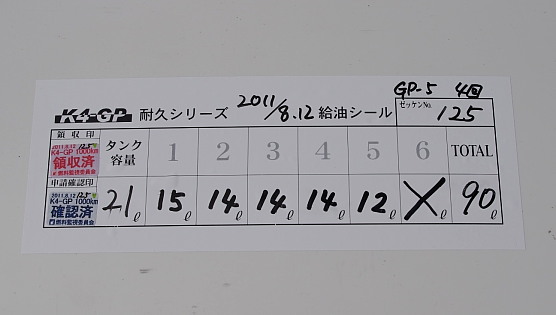 GP-5 4回
K4-GP 耐久シリーズ 2011/8.12 給油シール ゼッケンNo. 125
領収印 タンク容量 1 2 3 4 5 6 TOTAL
2011.8.12 125
K4-GP 1000km
領収済
燃料監視委員会
申請確認印
2011.8.12 125
K4-GP 1000km
確認済
燃料監視委員会
21ℓ 15ℓ 14ℓ 14ℓ 14ℓ 12ℓ Xℓ 90ℓ